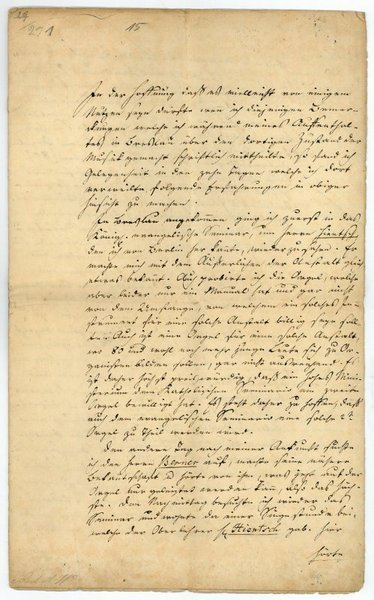 271
15
In der Hoffnung daß es vielleicht von einigem
Nutzen seyn dürfte wenn ich diejenigen Bemer-
kungen welche ich während meines Aufenthal-
tes in Breslau über den dortigen Zustand der
Musik gemacht schriftlich mittheilte, so fand ich
Gelegenheit in den zehn Tagen welche ich dort
verweilte folgende Erfahrungen in obiger
Hinsicht zu machen.
In Breslau angekommen ging ich zuerst in das
Königl. evangelische Seminar, um Herrn Hientzsch
den ich von Berlin her kannte, wieder zu sehen. Er
machte mich mit dem Äußerlichen der Anstalt gleich
etwas bekannt. Auch probirte ich die Orgel, welche
aber leider nur ein Manual hat und gar nicht
von dem Umfange, von welchem ein solches In-
strument für eine solche Anstalt billig seyn soll-
te. Auch ist eine Orgel für eine solche Anstalt
wo 80 und wohl noch mehr junge Leute sich zu Or-
ganisten bilden sollen, gar nicht ausreichend. Es
ist daher höchst preiswürdig, daß ein hohes Mini-
sterium dem katholischen Seminario ein zweite
Orgel bewilligt hat. Es steht daher zu hoffen, daß
auch dem evangelischen Seminario eine solche 2te
Orgel zu Theil werden wird.
Den andern Tag nach meiner Ankunft suchte
ich den Herrn Berner auf, machte seine nähere
Bekanntschaft u hörte von ihm, was jetzt auf der
Orgel nur geleistet werden kann, also das Höch-
ste. Den Nachmittag besuchte ich wieder das
Seminar und wohnte da einer Singestunde bei,
welche der Oberlehrer H. Hientzsch gab. Hier
hörte